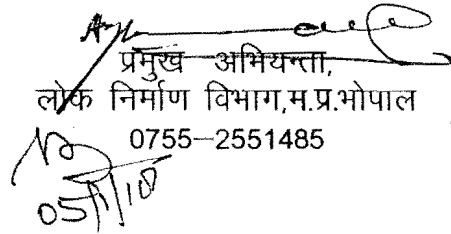 प्रमुख अभियन्ता,
लोक निर्माण विभाग,म.प्र.भोपाल
0755–2551485